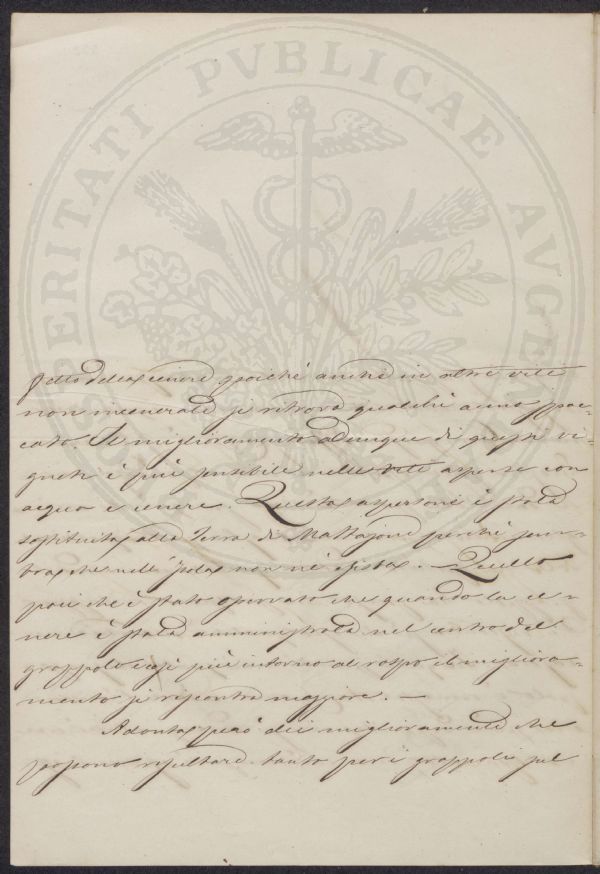 PROSPERITATI PVBLICAE AVGENDAE
della cenere, poiché anche in altre viti
non incenerate si ritrova qualche acino spac-
cato. Il miglioramento adunque di queste vi-
gneti è più sensibile nelle viti asperse con
acqua e cenere. Questa aspersione è stata
sostituita alla Terra di Mattajone perché sem-
bra che nell' Isola non né esista. — Quello
poi che è stato osservato che quando la ce-
nere è stata amministrata nel centro del
grappolo e così più intorno al raspo il migliora-
mento si riscontra maggiore. —
Adonta però dei miglioramenti che
possono risultare tanto per i grappoli sul